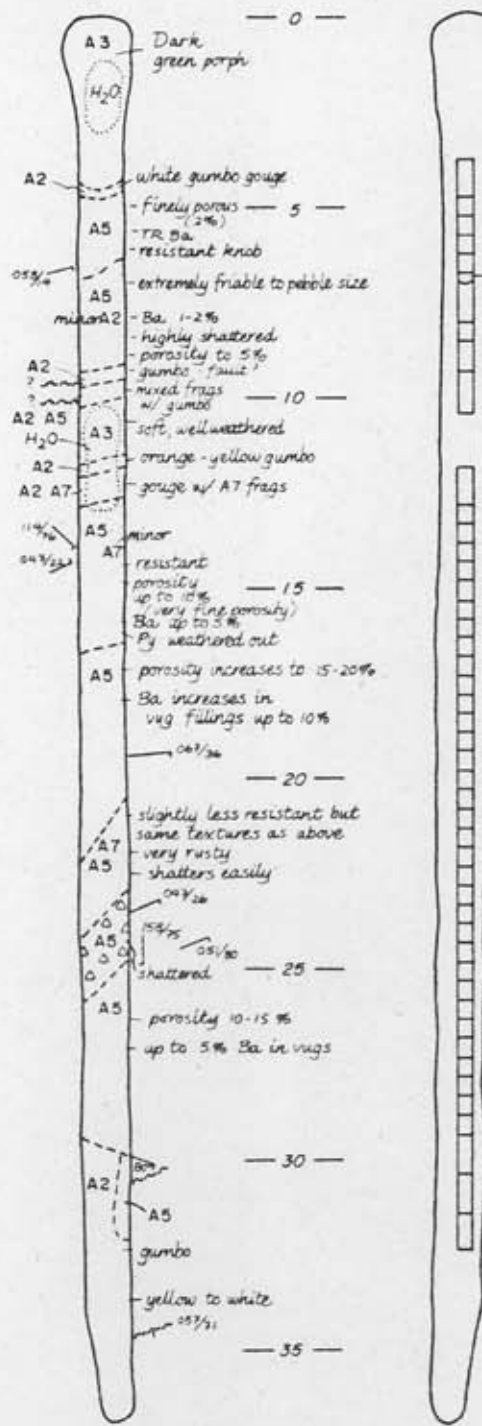 0
A3
Dark
green porph
H₂O
A2
white gumbo gouge
5
finely porous
(2%)
A5
TR Ba
resistant knob
A5
extremely friable to pebble size
minor A2
Ba 1-2%
highly shattered
porosity to 5%
A2
gumbo - fault?
?
mixed frags
w/ gumbo
10
?
A2 A5
A3
soft, well weathered
H₂O
A2
orange-yellow gumbo
A2 A7
gouge w/ A7 frags
A5
minor
A7
resistant
porosity
15
up to 10%
(very fine porosity)
Ba up to 5%
Py weathered out
A5
porosity increases to 15-20%
Ba increases in
vug fillings up to 10%
20
slightly less resistant but
same textures as above
A7
very rusty
A5
shatters easily
047/26
155/75
A5
051/80
25
shattered
A5
porosity 10-15 %
up to 5% Ba in vugs
30
A2
A5
gumbo
yellow to white
35